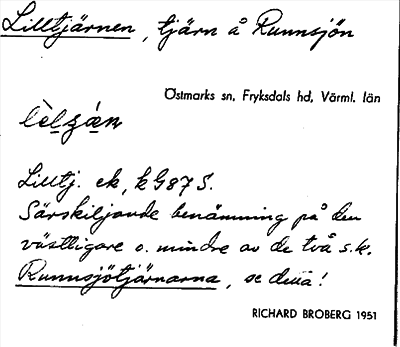 Lilltjärnen, tjärn å Runnsjön
Östmarks sn, Fryksdals hd, Värml. län
Lilltj. ek, k G87 S.
Särskiljande benämning på den
västligare o. mindre av de två s.k.
Runnsjötjärnarna, se detta!
RICHARD BROBERG 1951